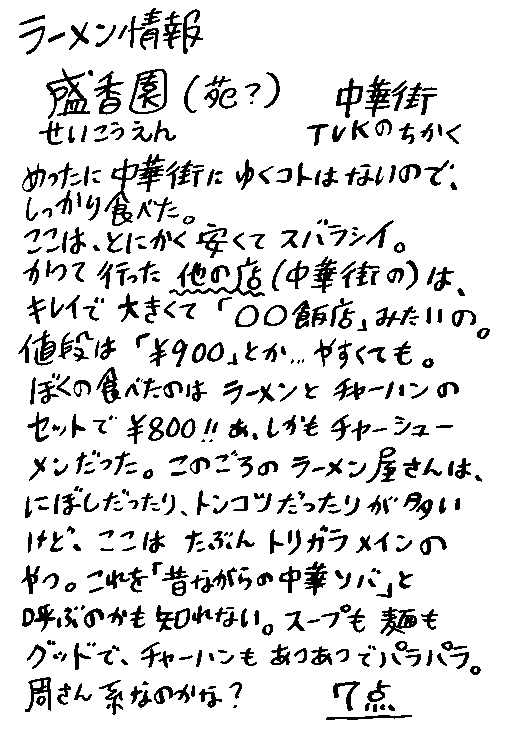 ラーメン情報
盛香園(苑?) 中華街
せいこうえん TVKのちかく
めったに中華街にゆくコトはないので、
しっかり食べた。
ここは、とにかく安くてスバラシイ。
かつて行った他の店(中華街の)は、
キレイで大きくて「〇〇飯店」みたいの。
値段は「¥900」とか…やすくても。
ぼくの食べたのはラーメンとチャーハンの
セットで¥800!!あ、しかもチャーシュー
メンだった。このごろのラーメン屋さんは、
にぼしだったり、トンコツだったりが多い
けど、ここはたぶんトリガラメインの
やつ。これを「昔ながらの中華ソバ」と
呼ぶのかも知れない。スープも麺も
グッドで、チャーハンもあつあつでパラパラ。
周さん系なのかな? 7点